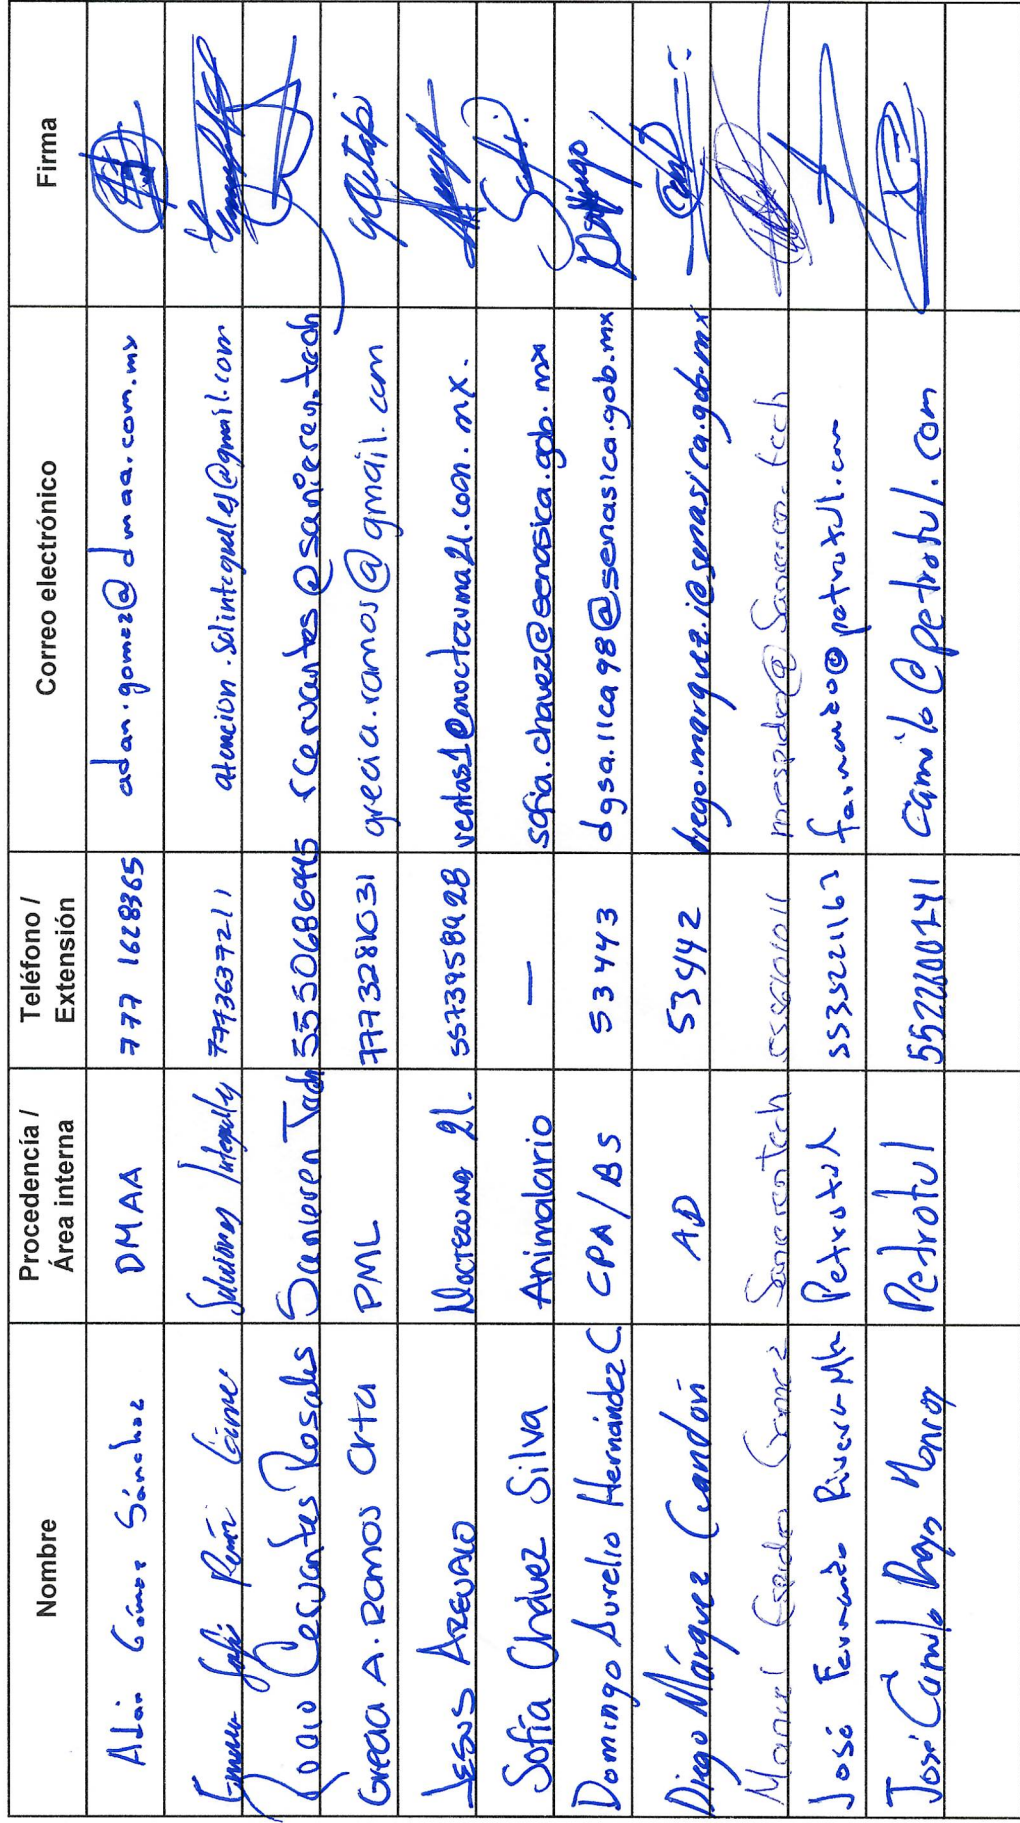 Nombre Procedencía / Área interna Teléfono / Extensión Correo electrónico Firma
Adán Gómez Sánchez DMAA 777 1628365 adan.gomez@dmaa.com.mx
Soluciones Integrales 7773637211 atencion.solintegrales@gmail.com
Rocio Cervantes Rosales Sanieren Tech 5550686945 rcervantes@sanieren.tech
Grecia A. Ramos Orta PML 7773281031 grecia.ramos@gmail.com
Jesus Arevalo Moctezuma 21. 5573958928 ventas1@moctezuma21.com.mx.
Sofía Chávez Silva Animalario — sofia.chavez@senasica.gob.mx
Domingo Aurelio Hernández C. CPA/BS 53443 dgsa.iica98@senasica.gob.mx
Diego Márquez AD 53442 diego.marquez.i@senasica.gob.mx
Manuel Espidio Gomez Sanieren Tech mespidio@sanieren.tech
José Fernando Rivera Petrotul 5535221163 fernando@petrotul.com
José Camilo Monroy Petrotul camilo@petrotul.com